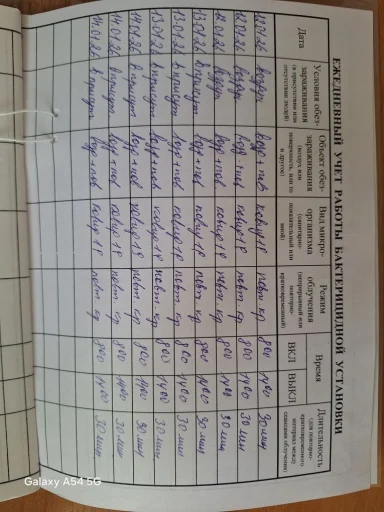 ЕЖЕДНЕВНЫЙ УЧЕТ РАБОТЫ БАКТЕРИЦИДНОЙ УСТАНОВКИ
Дата
Условия обез-
зараживания
(в присутствии или
отсутствие людей)
Объект обез-
зараживания
(воздух или
поверхность, или то
и другое)
Вид микро-
организма
(санитарно-
показательный или
иной)
Режим
облучения
(непрерывный или
повторно-
кратковременный)
Время
ВКЛ
ВЫКЛ
Длительность
(для повторно-
кратковременного
интервал между
сеансами облучения)
12.01.26 воздух возд + пов ковид 19 повт. кр 8 00 14 00 30 мин
12.01.26 воздух возд + пов ковид 19 повт. кр 8 00 14 00 30 мин
12.01.26 воздух возд + пов ковид 19 повт. кр 8 00 14 00 30 мин
13.01.26 в присут возд + пов ковид 19 повт. кр 8 00 14 00 30 мин
13.01.26 в присут возд + пов ковид 19 повт. кр 8 00 14 00 30 мин
13.01.26 в присут возд + пов ковид 19 повт. кр 8 00 14 00 30 мин
14.01.26 в присут возд + пов ковид 19 повт. кр 8 00 14 00 30 мин
14.01.26 в присут возд + пов ковид 19 повт. кр 8 00 14 00 30 мин
14.01.26 в присут возд + пов ковид 19 повт. кр 8 00 14 00 30 мин
Galaxy A54 5G